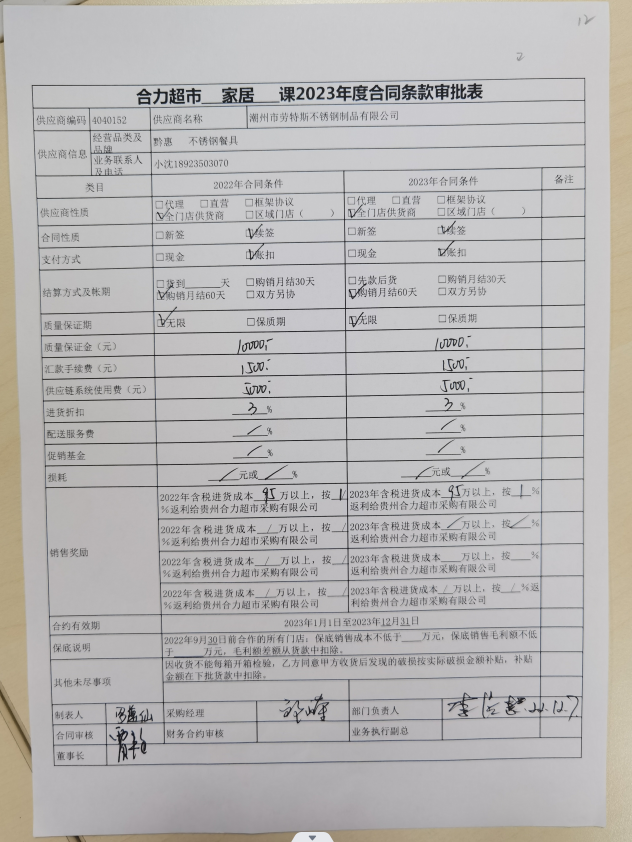 12
2
合力超市 家居 课2023年度合同条款审批表
供应商编码 4040152 供应商名称 潮州市劳特斯不锈钢制品有限公司
供应商信息 经营品类及品牌 黔惠 不锈钢餐具
业务联系人及电话 小沈18923503070
类目 2022年合同条件 2023年合同条件 备注
供应商性质 □代理 □直营 □框架协议 □代理 □直营 □框架协议
☑全门店供货商 □区域门店（ ） ☑全门店供货商 □区域门店（ ）
合同性质 □新签 ☑续签 □新签 ☑续签
支付方式 □现金 ☑账扣 □现金 ☑账扣
结算方式及帐期 □货到____天 □购销月结30天 □先款后货 □购销月结30天
☑购销月结60天 □双方另协 ☑购销月结60天 □双方另协
质量保证期 ☑无限 □保质期 ☑无限 □保质期
质量保证金（元） 10000,- 10000,-
汇款手续费（元） 1500,- 1500,-
供应链系统使用费（元） 5000,- 5000,-
进货折扣 3 % 3 %
配送服务费 / % / %
促销基金 / % / %
损耗 / 元或 / % / 元或 / %
销售奖励 2022年含税进货成本 95 万以上，按 1 2023年含税进货成本 95 万以上，按 1 %
%返利给贵州合力超市采购有限公司 返利给贵州合力超市采购有限公司
2022年含税进货成本 / 万以上，按 / 2023年含税进货成本 / 万以上，按 / %
%返利给贵州合力超市采购有限公司 返利给贵州合力超市采购有限公司
2022年含税进货成本 / 万以上，按 / 2023年含税进货成本____万以上，按__%
%返利给贵州合力超市采购有限公司 返利给贵州合力超市采购有限公司
2022年含税进货成本 / 万以上，按 / 2023年含税进货成本 / 万以上，按 / %返
%返利给贵州合力超市采购有限公司 利给贵州合力超市采购有限公司
合约有效期 2023年1月1日至2023年12月31日
保底说明 2022年9月30日前合作的所有门店，保底销售成本不低于____万元，保底销售毛利额不低
于______万元，毛利额差额从货款中扣除。
其他未尽事项 因收货不能每箱开箱检验，乙方同意甲方收货后发现的破损按实际破损金额补贴，补贴
金额在下批货款中扣除。
制表人 采购经理 部门负责人 22.12.7
合同审核 财务合约审核 业务执行副总
董事长